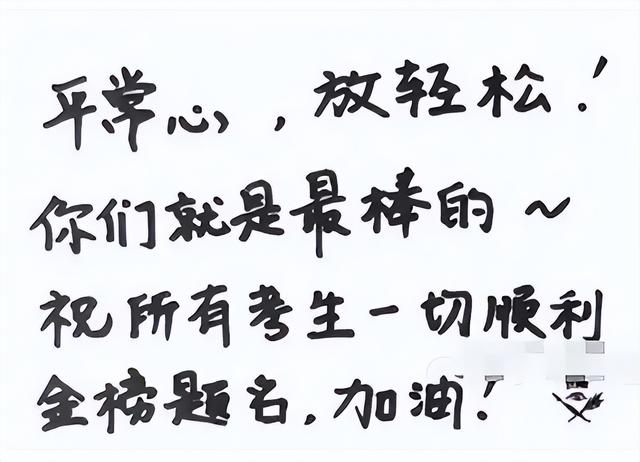 平常心,放轻松!
你们就是最棒的~
祝所有考生一切顺利
金榜题名,加油!